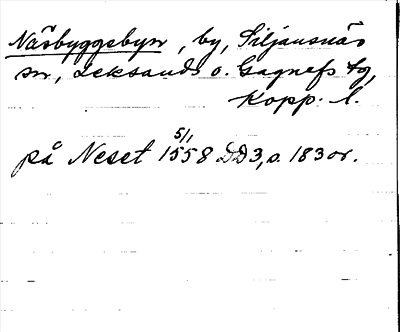 Näsbyggebyn, by, Siljansnäs
sn, Leksands o. Gagnefs tg,
Kopp. l.
på Neset 1558 5/1 DD3, s. 183 or.